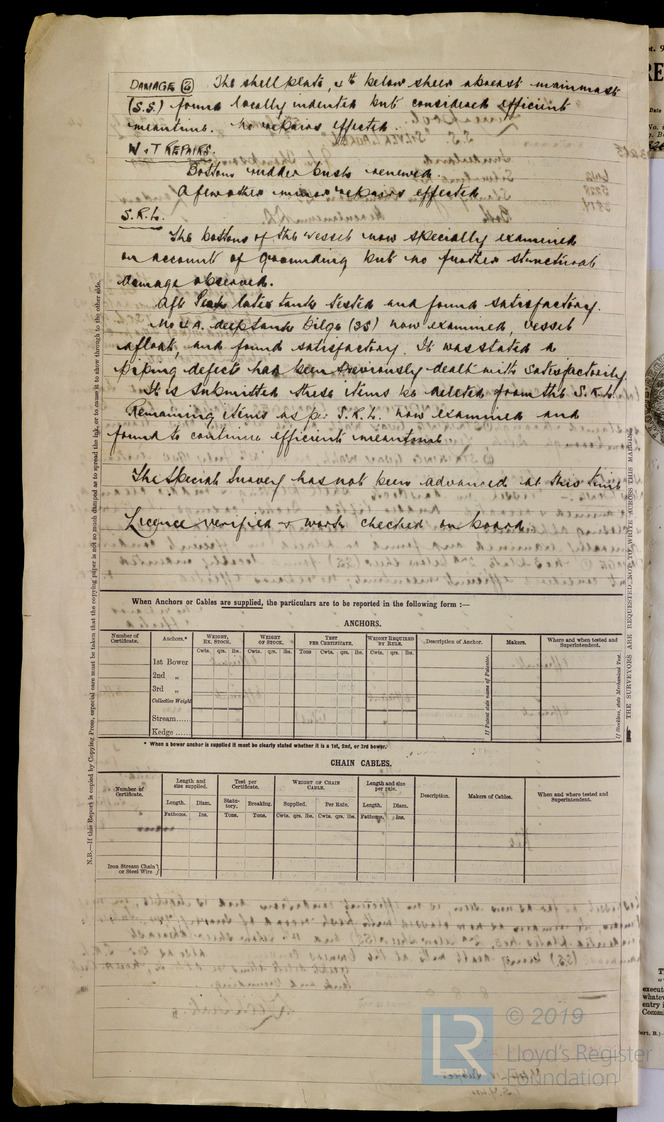 DAMAGE (2) The shell plate, 4th below sheer abreast mainmast
(S.S.) found locally indented but considered efficient
meantime. No repairs effected.
W & T REPAIRS.
Bottom rudder bush renewed.
A few other minor repairs effected.
S.R.L.
The bottom of the vessel now specially examined
on account of grounding but no further structural
damage observed.
Aft Peak tank tested and found satisfactory.
No 4 A. deep tank Bilge (SS) now examined, vessel
afloat, and found satisfactory. It was stated a
piping defect had been previously dealt with satisfactorily.
It is submitted these items be deleted from the S.R.L.
Remaining items as per S.R.L. now examined and
found to continue efficient meantime.
The Special Survey has not been advanced at this time
Licence verified & work checked on board.
When Anchors or Cables are supplied, the particulars are to be reported in the following form :—
ANCHORS.
Number of Certificate. Anchors.* WEIGHT, EX. STOCK. WEIGHT OF STOCK. TEST PER CERTIFICATE. WEIGHT REQUIRED BY RULE. Description of Anchor. Makers. Where and when tested and Superintendent.
Cwts. qrs. lbs. Cwts. qrs. lbs. Tons Cwts. qrs. lbs. Cwts. qrs. lbs.
1st Bower
2nd „
3rd „
Collective Weight
Stream
Kedge
If Patent state name of Patentee.
If Stockless, state Mechanical Test.
* When a bower anchor is supplied it must be clearly stated whether it is a 1st, 2nd, or 3rd bower.
CHAIN CABLES.
Number of Certificate. Length and size supplied. Test per Certificate. WEIGHT OF CHAIN CABLE. Length and size per rule. Description. Makers of Cables. When and where tested and Superintendent.
Length. Diam. Statutory. Breaking. Supplied. Per Rule. Length. Diam.
Fathoms. Ins. Tons. Tons. Cwts. qrs. lbs. Cwts. qrs. lbs. Fathoms. Ins.
Iron Stream Chain or Steel Wire }
N.B.—If this Report is copied by Copying Press, especial care must be taken that the copying paper is not so much damped as to spread the ink, or to cause it to show through to the other side.
THE SURVEYORS ARE REQUESTED NOT TO WRITE ACROSS THIS MARGIN.
LR © 2019
Lloyd's Register
Foundation